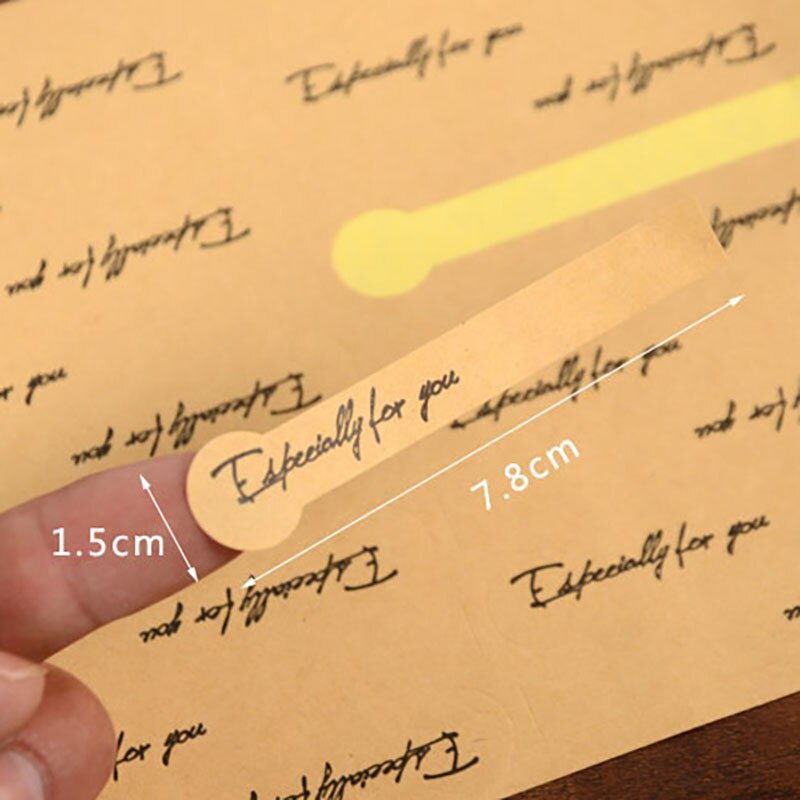 Especially for you
Especially for you
Especially for you
Especially for you
Especially for you
Especially
for you
Especially for you
Especially for you
Especially for you
7.8cm
1.5cm
Especially for you
Especially for you
for you
Especially for you